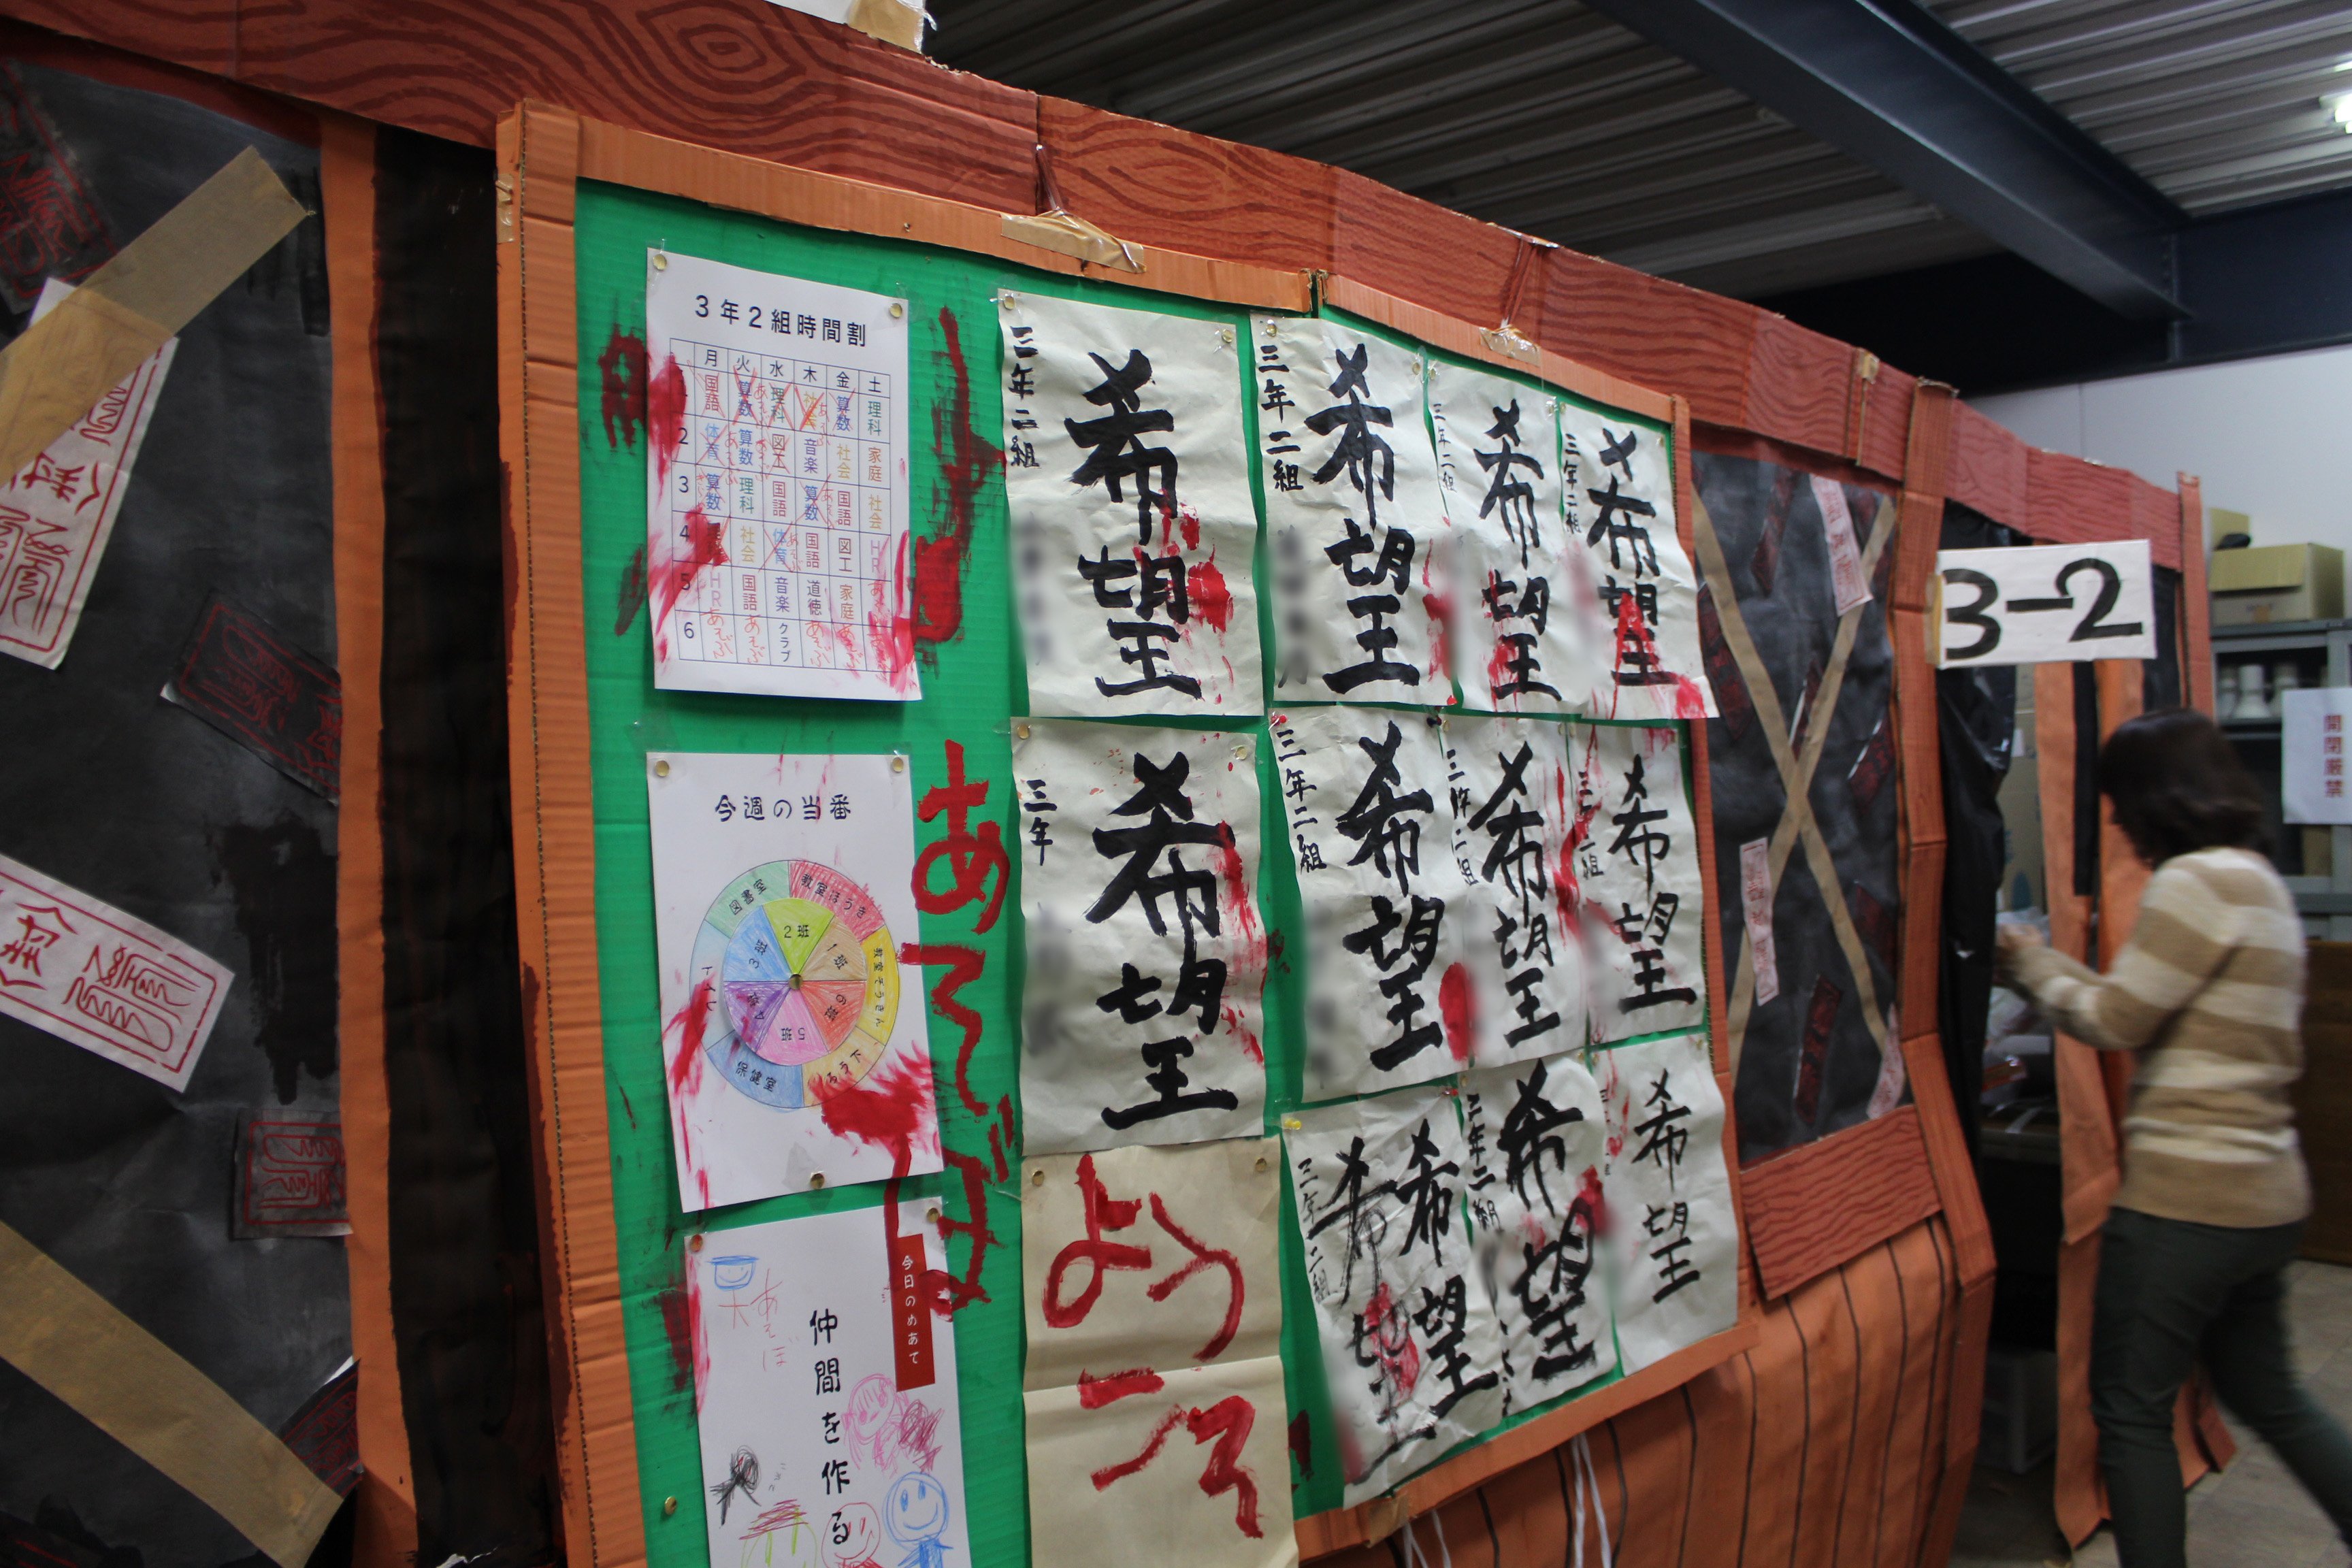 3年2組時間割
月 火 水 木 金 土
1 国語 算数 理科 社会 算数 理科
2 体育 算数 図工 音楽 社会 家庭
3 算数 理科 国語 算数 国語 社会
4 社会 体育 国語 図工 HR
5 HR 国語 音楽 道徳 家庭
6 あそぶ あそぶ クラブ あそぶ あそぶ
今週の当番
図書室
教室ほうき
教室ぞうきん
ろう下
保健室
トイレ
2班
1班
6班
5班
4班
3班
今日のめあて
仲間を作る
あそぼ
あそぼ
三年二組
希望
三年二組
希望
三年二組
希望
三年二組
希望
三年
希望
三年二組
希望
三年二組
希望
三年二組
希望
ようこそ
三年二組
希望
希望
三年二組
希望
希望
3-2
開閉厳禁